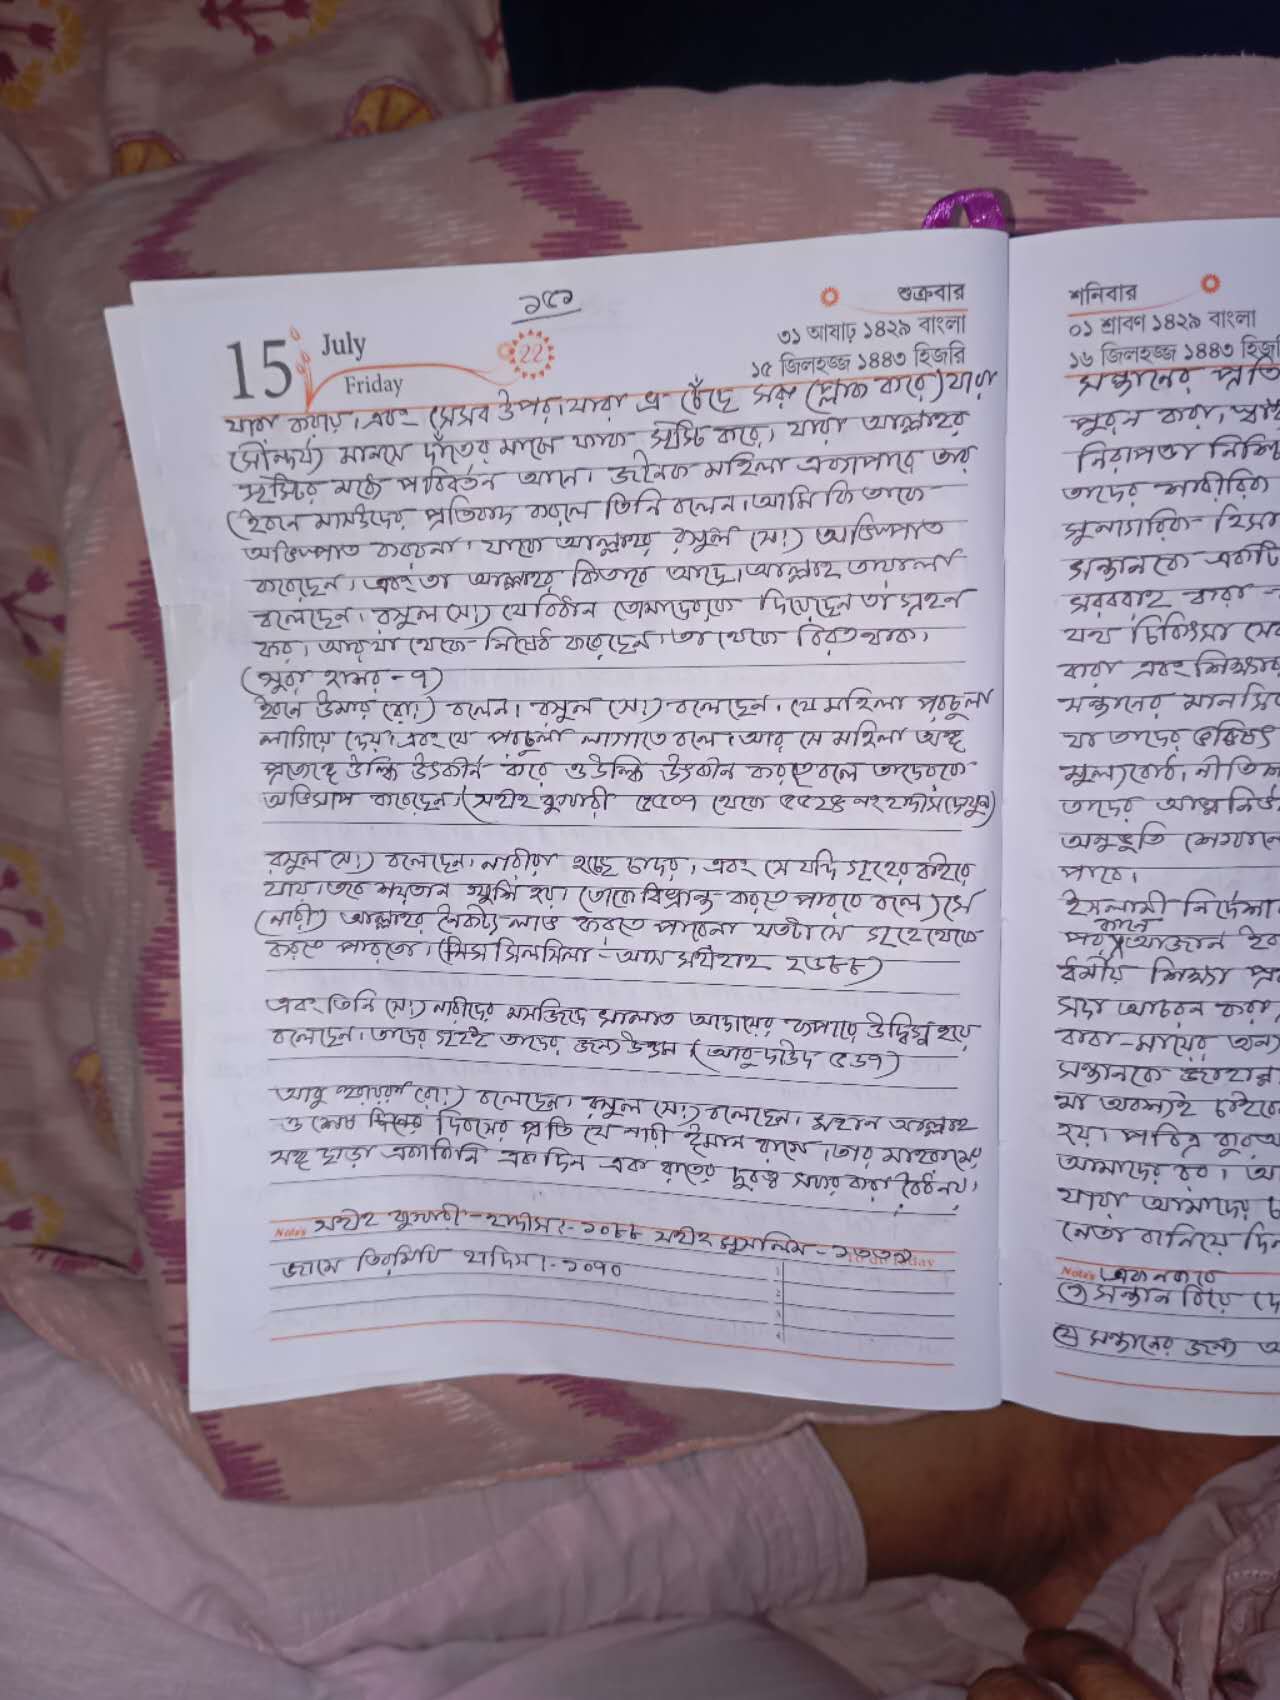 ১৫১
15 July Friday
22
শুক্রবার
৩১ আষাঢ় ১৪২৯ বাংলা
১৫ জিলহজ্জ ১৪৪৩ হিজরি
যারা করায়, এবং সেসব উপর, যারা ভ্রু চেঁছে সরু (প্লাক করে) যারা
সৌন্দর্য মানসে দাঁতের মাঝে ফাঁকা সৃষ্টি করে, যারা আল্লাহর
সৃষ্টির মধ্যে পরিবর্তন আনে। জনৈক মহিলা এব্যাপারে তার
(ইবনে মাসউদের প্রতিবাদ করলে তিনি বলেন, আমি কি তাকে
অভিশপাত করবনা, যাকে আল্লাহর রসুল (সাঃ) অভিশপাত
করেছেন, এবং তা আল্লাহর কিতাবে আছে, আল্লাহ তায়ালা
বলেছেন, রসুল (সাঃ) যে বিধান তোমাদেরকে দিয়েছেন তা গ্রহন
কর, আর যা থেকে নিষেধ করেছেন, তা থেকে বিরত থাক,
(সুরা হাসর - ৭)
ইবনে উমার (রাঃ) বলেন, রসুল (সাঃ) বলেছেন, যে মহিলা পরচুলা
লাগিয়ে দেয়, এবং যে পরচুলা লাগাতে বলে, আর সে মহিলা অঙ্গ
প্রত্যঙ্গে উল্কি উৎকীর্ন করে ও উল্কি উৎকীর্ন করতে বলে তাদেরকে
অভিসাপ করেছেন, (সহীহ বুখারী ৫৫০৭ থেকে ৫৫২৪ নং হাদীস দেখুন)
রসুল (সাঃ) বলেছেন, নারীরা হচ্ছে চাদর, এবং সে যদি গৃহের বাইরে
যায়, তবে শয়তান খুশি হয়। (তাকে বিভ্রান্ত করতে পারবে বলে) সে
(নারী) আল্লাহর নৈকট্য লাভ করতে পারেনা যতটা সে গৃহে থেকে
করতে পারতো, (সিলসিলা - আস সহীহাহ ২৬৮৮)
এবং তিনি (সাঃ) নারীদের মসজিদে সালাত আদায়ের ব্যপারে উদ্বিগ্ন হয়ে
বলেছেন, তাদের গৃহই তাদের জন্য উত্তম (আবু দাউদ ৫৬৭)
আবু হুরায়রা (রাঃ) বলেছেন, রসুল (সাঃ) বলেছেন, মহান আল্লাহ
ও শেষ দিনের দিবসের প্রতি যে নারী ঈমান রাখে, তার মাহরামের
সঙ্গ ছাড়া একাকিনি এক দিন এক রাতের দুরত্ব সফর করা বৈধ নয়,
Notes সহীহ বুখারী - হাদীস নং - ১০৮৮ সহীহ মুসলিম -
জামে তিরমিযি হাদিস নং - ১০৭০
শনিবার
০১ শ্রাবণ ১৪২৯ বাংলা
১৬ জিলহজ্জ ১৪৪৩ হিজরি
সন্তানের প্রতি
পুরন করা,
নিরাপত্তা নিশ্চি
তাদের শারীরিক
সুনাগরিক হিসা
সন্তানকে একটি
সরবরাহ করা
যত্ন চিকিৎসা সে
করা এবং শিক্ষার
সন্তানের মানসি
যা তাদের ভবিষ্যৎ
মূল্যবোধ, নীতি
তাদের আত্ম নির্ভ
অনুভূতি শেখানো
পারে,
ইসলামী নির্দেশ
পর কানে আজান
ধর্মীয় শিক্ষা প্র
সদা আচরন করা,
বাবা-মায়ের অন্য
সন্তানকে
মা অবশ্যই চাইবে
হয়। পবিত্র কুরআ
আমাদের রব।
যারা আমাদের
নেতা বানিয়ে দিন
Notes এবানকারে
সন্তান বিয়ে দে
সন্তানের জন্য